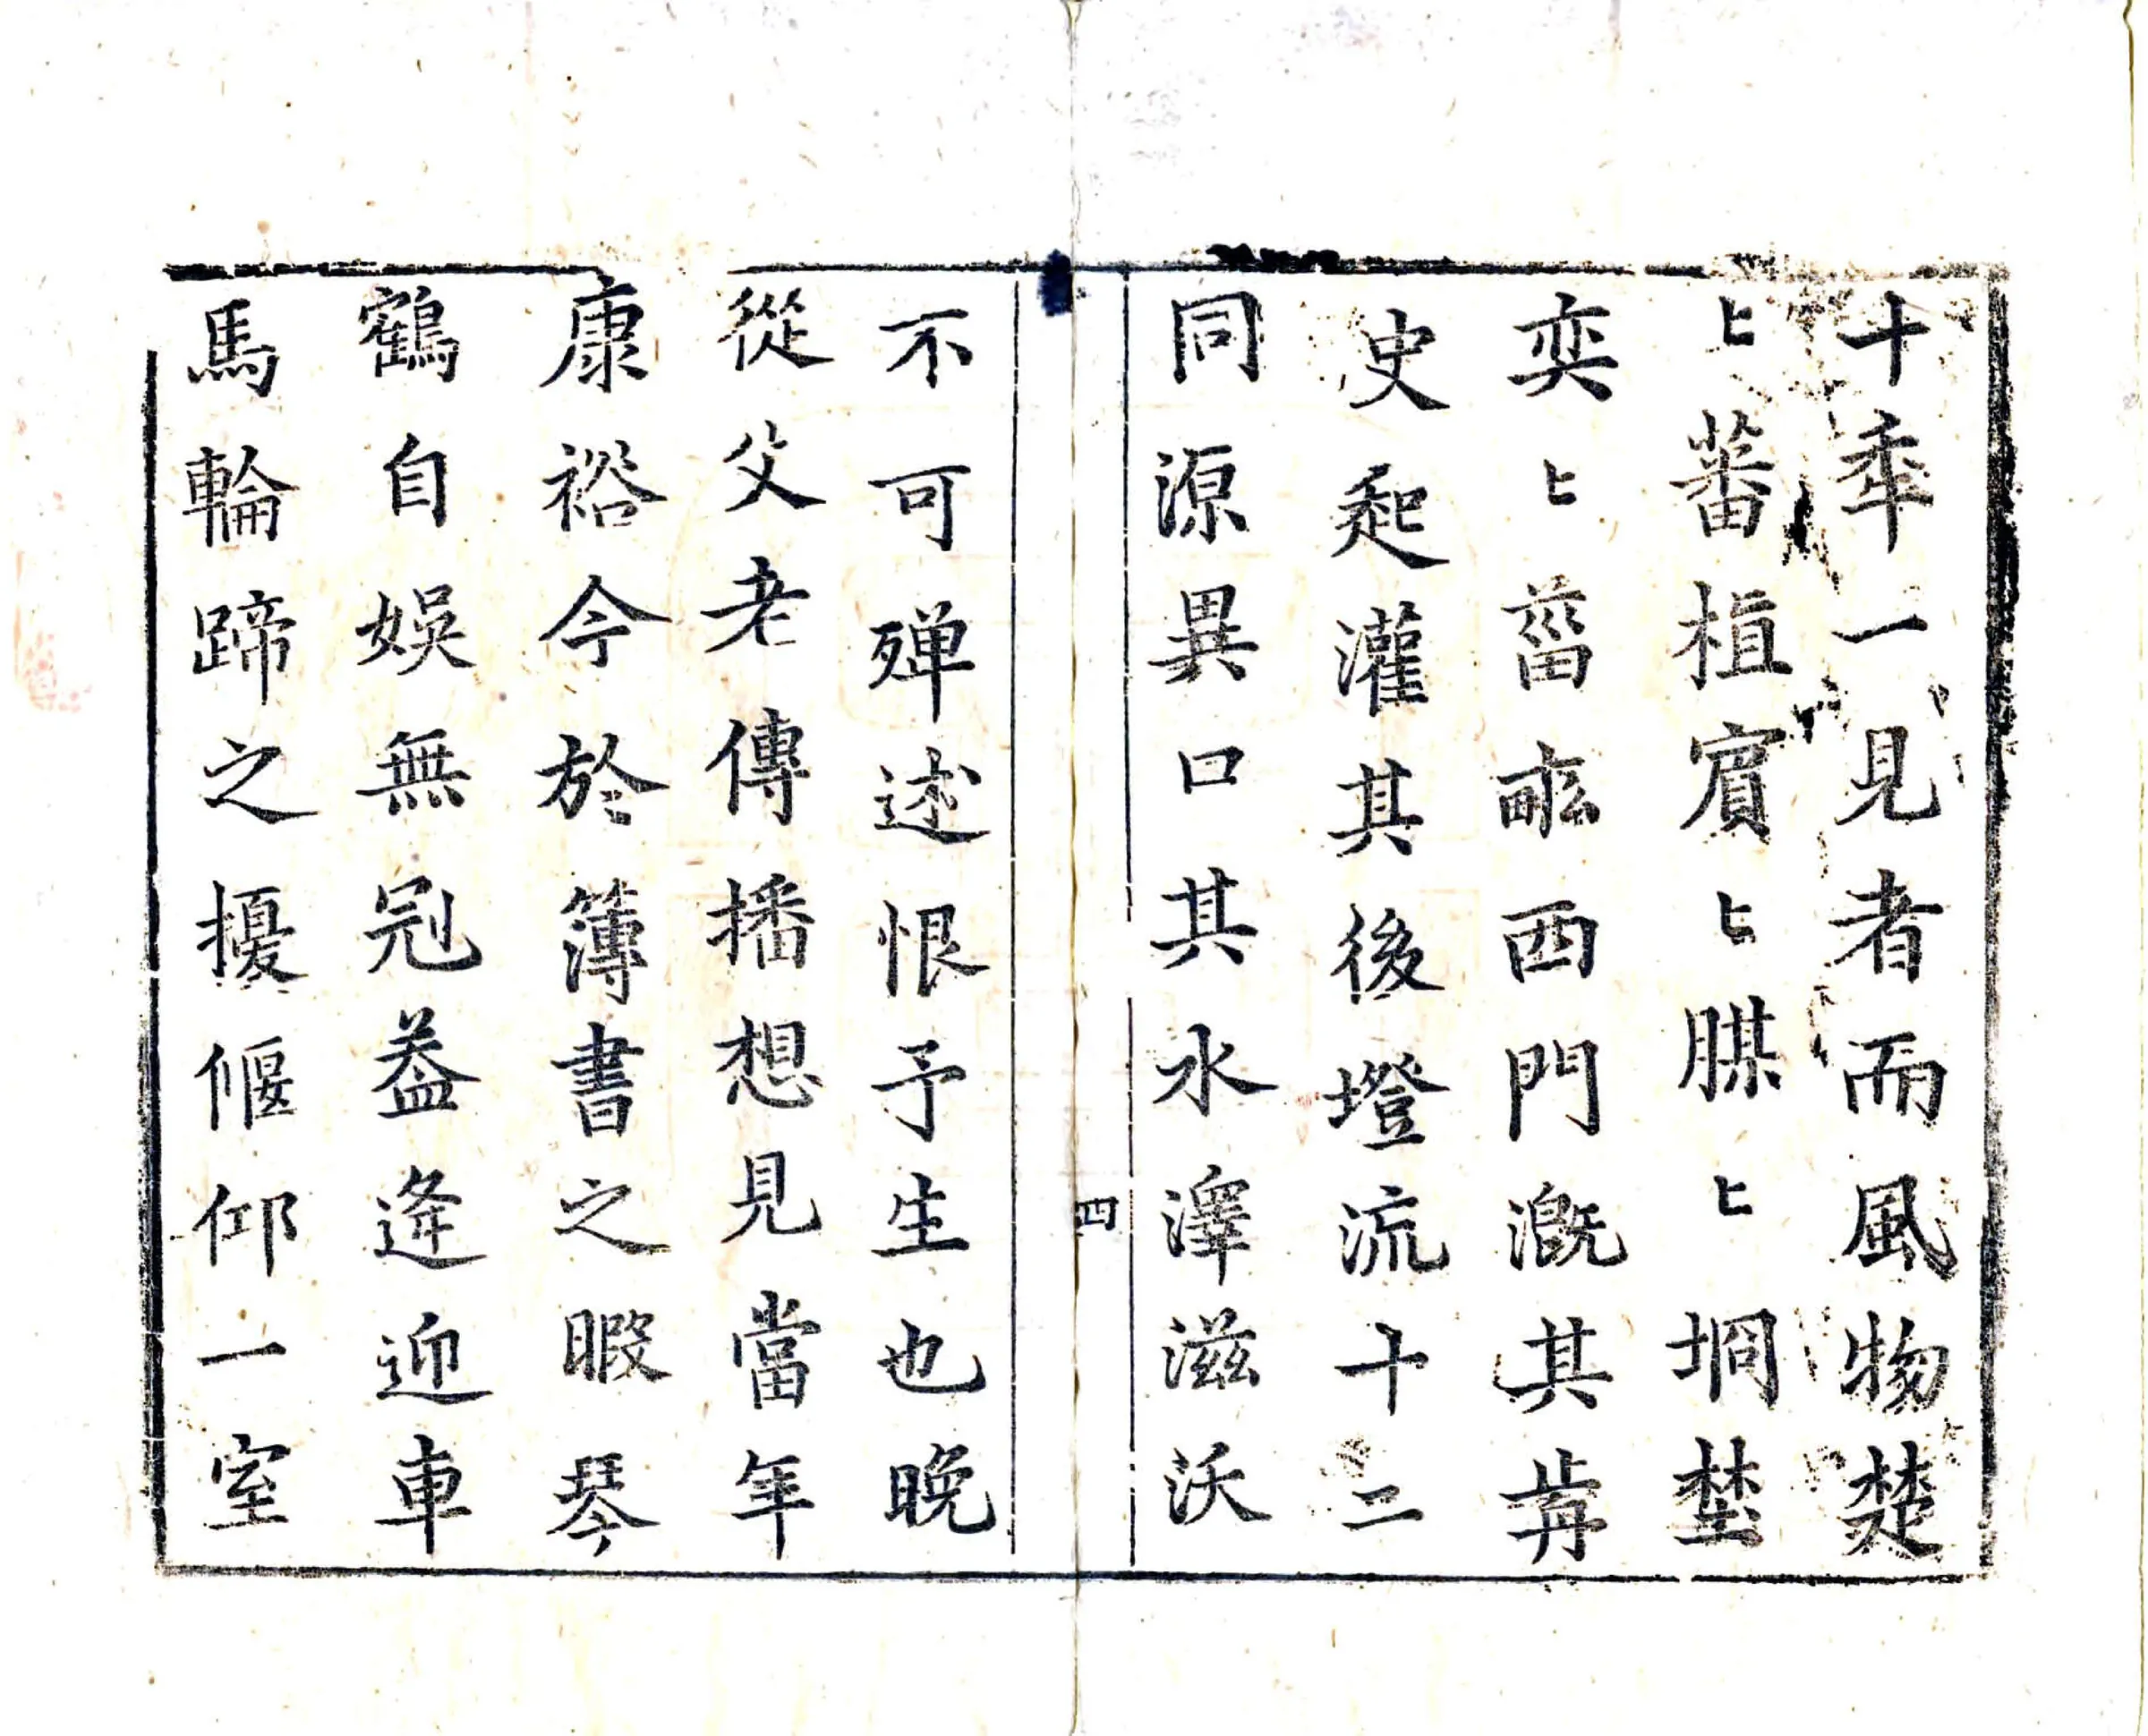 十秊一見者而風物楚
〻蕃植賔〻腜〻坰埜
奕〻菑畞西門漑其歬
史起灌其後墱流十二
同源異口其水澤滋沃
四
不可殫述恨予生也晚
從父老傳播想見當年
康裕今於簿書之暇琴
鶴自娛無冠葢逢迎車
馬輪蹄之擾偃仰一室